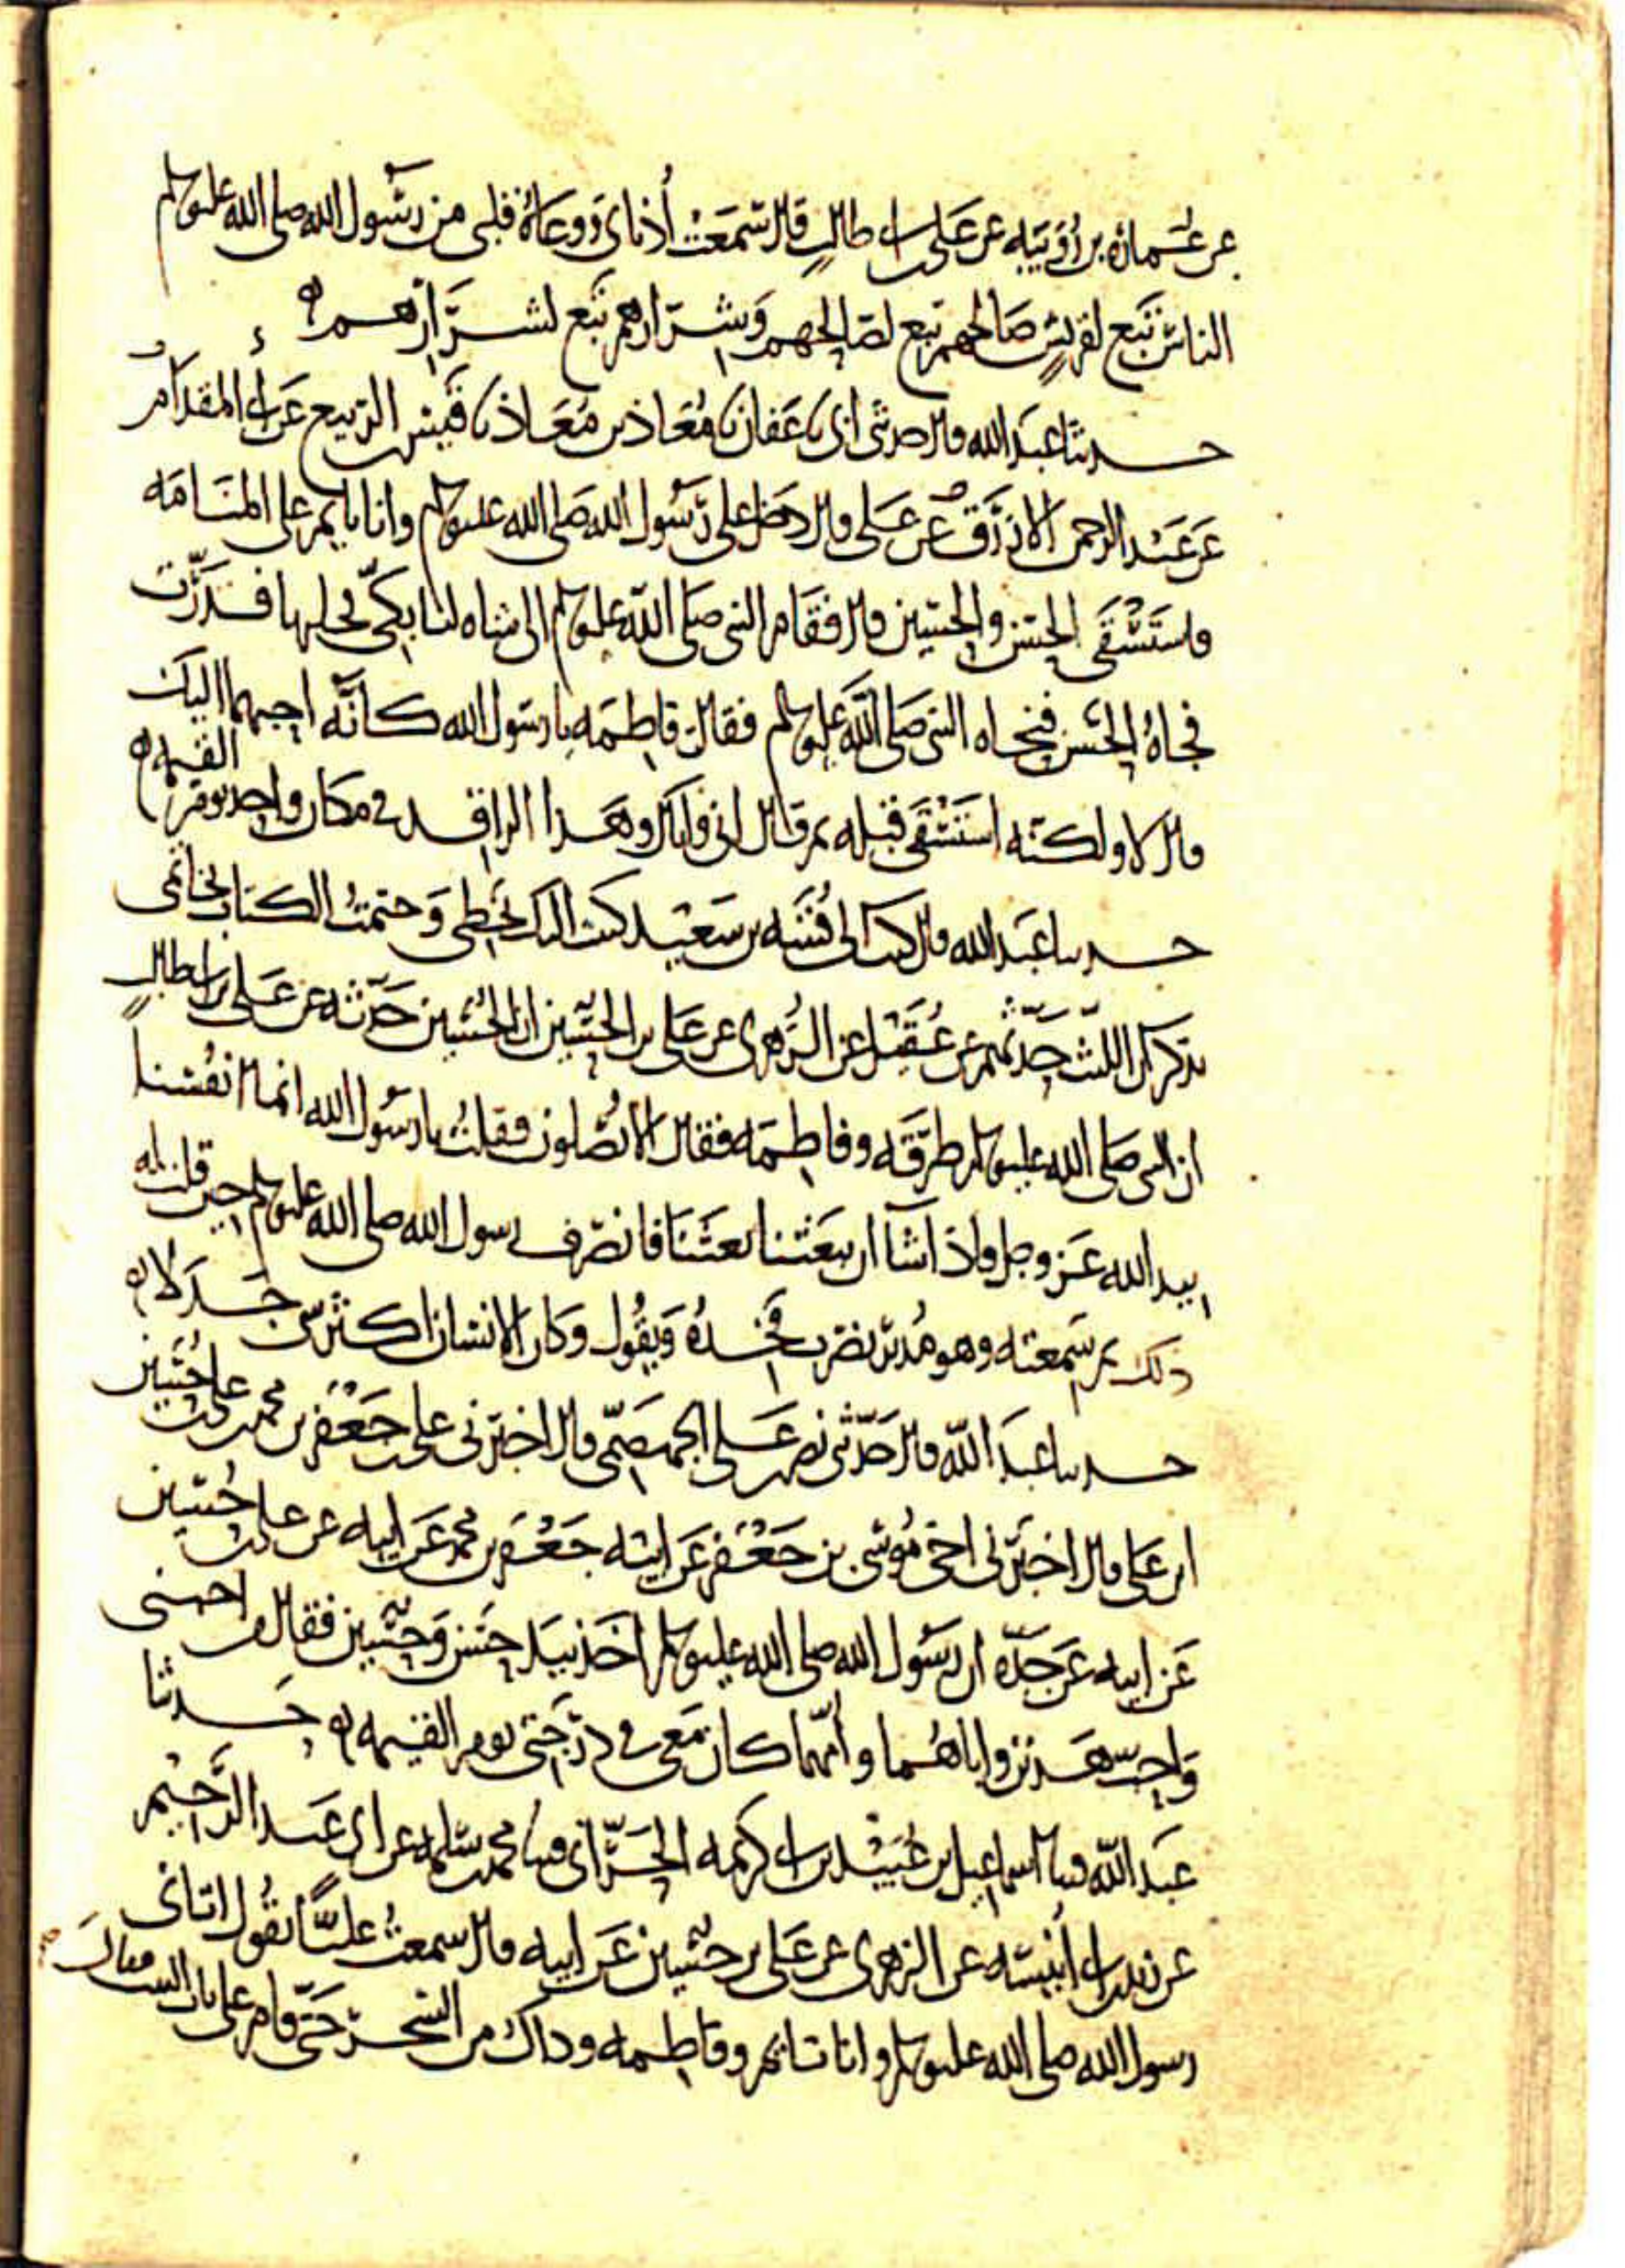 عن عمارة بن رؤيبة عن علي بن أبي طالب قال سمعت أذناي ووعاه قلبي من رسول الله صلى الله عليه وسلم
الناس تبع لقريش صالحهم تبع لصالحهم وشرارهم تبع لشرارهم ه
حدثنا عبد الله قال حدثني أبي نا عفان نا معاذ بن معاذ نا قيس بن الربيع عن أبي المقدام
عن عبد الرحمن الأزرق عن علي قال دخل علي رسول الله صلى الله عليه وسلم وأنا نايم على المنامة
فاستسقى الحسن والحسين قال فقام النبي صلى الله عليه وسلم إلى شاة لنا بكي فحلبها فدرت
فجاه الحسن فنحاه النبي صلى الله عليه وسلم فقالت فاطمة يا رسول الله كأنه أحبهما إليك
قال لا ولكنه استسقى قبله ثم قال إني وإياك وهذا الراقد في مكان واحد يوم القيمة ه
حدثنا عبد الله قال كتب إلي قتيبة بن سعيد كتبت إليك بخطي وختمت الكتاب بخاتمي
يذكر أن الليث حدثهم عن عقيل عن الزهري عن علي بن الحسين أن الحسين حدثه عن علي بن أبي طالب
أن النبي صلى الله عليه وسلم طرقه وفاطمة فقال ألا تصلون فقلت يا رسول الله إنما أنفسنا
بيد الله عز وجل فإذا شا أن يبعثنا بعثنا فانصرف رسول الله صلى الله عليه وسلم حين قلت له
ذلك ثم سمعته وهو مدبر يضرب فخذه ويقول وكان الإنسان أكثر شي جدلا ه
حدثنا عبد الله قال حدثني نصر بن علي الجهضمي قال أخبرني علي بن جعفر بن محمد بن علي بن حسين
ابن علي قال أخبرني أخي موسى بن جعفر عن أبيه جعفر بن محمد عن أبيه عن علي بن حسين
عن أبيه عن جده أن رسول الله صلى الله عليه وسلم أخذ بيد حسن وحسين فقال من أحبني
وأحب هذين وأباهما وأمهما كان معي في درجتي يوم القيمة ه حدثنا
عبد الله قال نا إسماعيل بن عبيد بن أبي كريمة الحراني قال نا محمد بن سلمة عن أبي عبد الرحيم
عن زيد بن أبي أنيسة عن الزهري عن علي بن حسين عن أبيه قال سمعت عليا يقول أتاني
رسول الله صلى الله عليه وسلم وأنا نايم وفاطمة وذاك من السحر حتى قام على باب البيت فقال